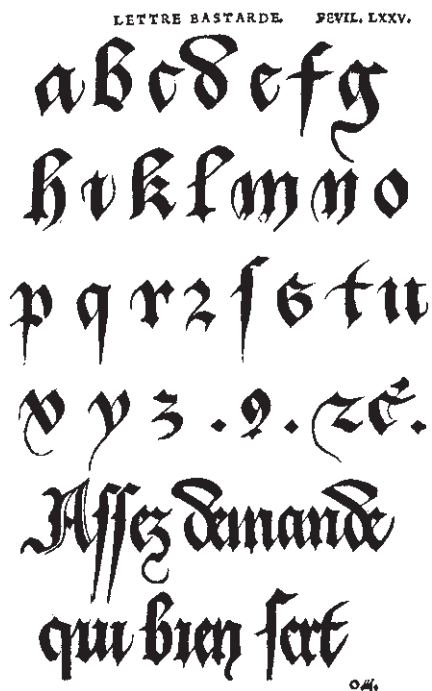 LETTRE BASTARDE. FEVIL. LXXV.
a b c d e f g
h i k l m n o
p q r ꝛ ſ s t u
v y z . 9 . ⁊c̄.
Aſſez demande
qui bien ſert
O.iij.